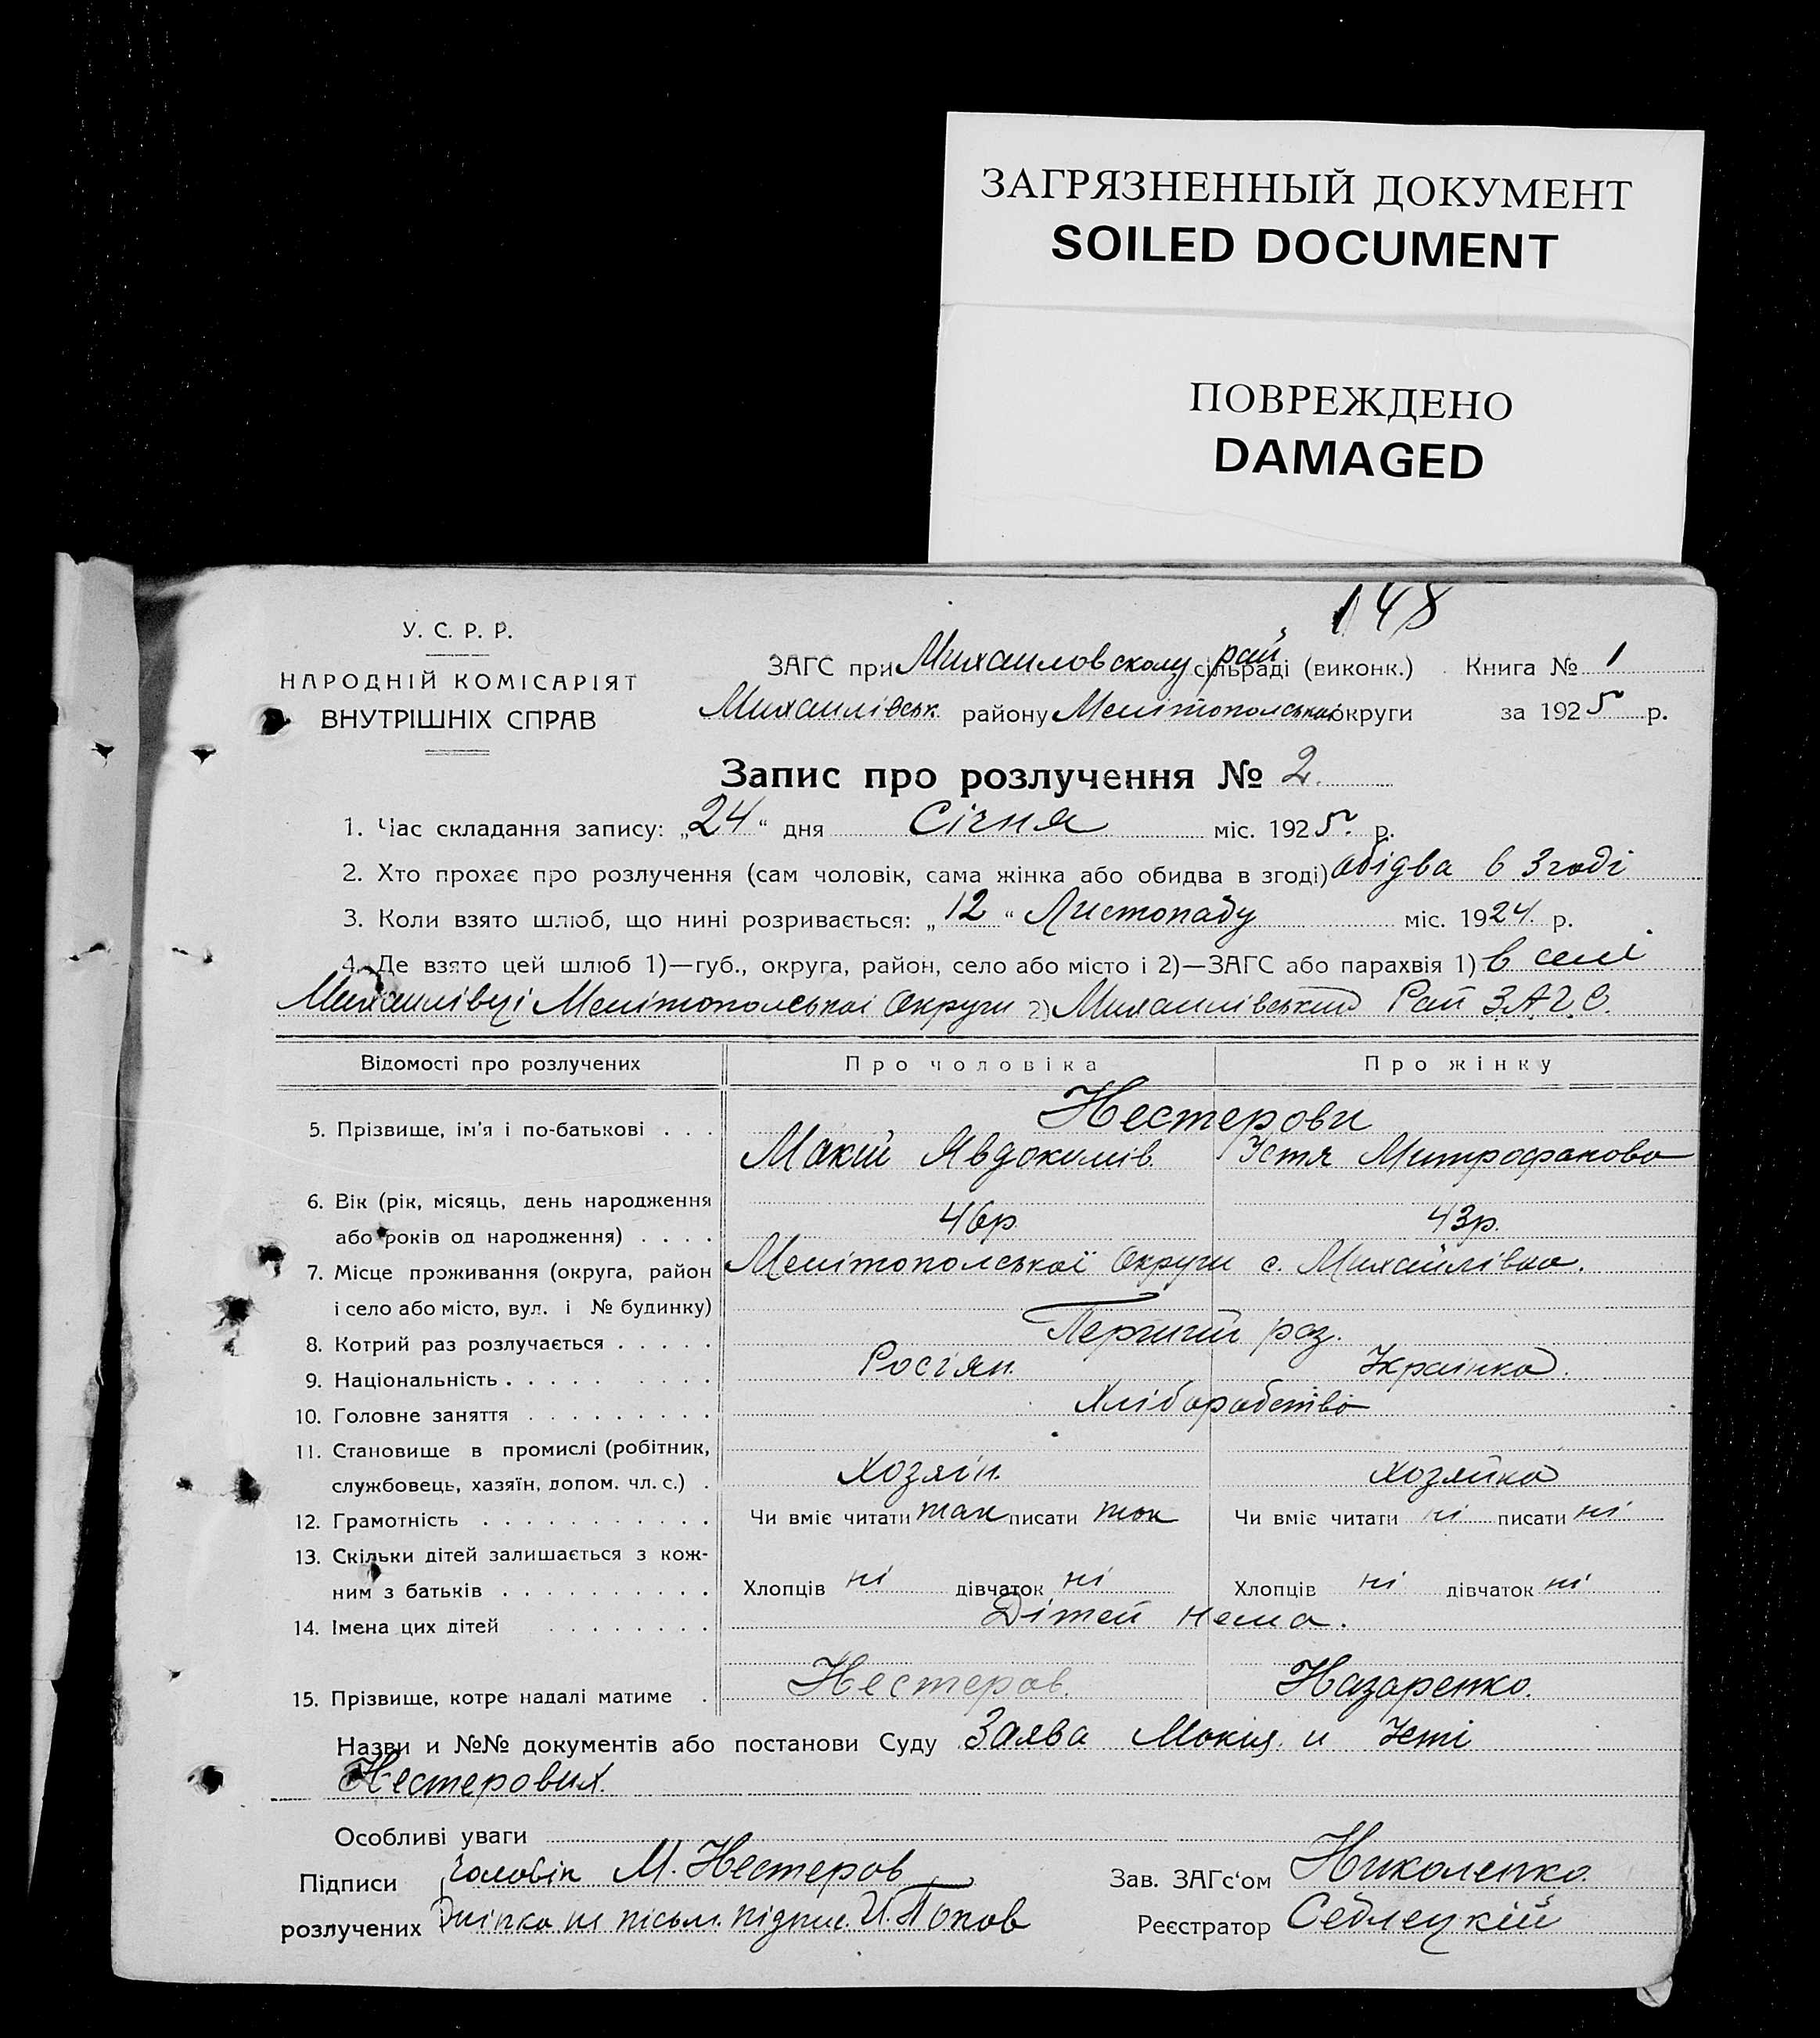 ЗАГРЯЗНЕННЫЙ ДОКУМЕНТ
SOILED DOCUMENT
ПОВРЕЖДЕНО
DAMAGED
148
У. С. Р. Р.
НАРОДНІЙ КОМІСАРІЯТ
ВНУТРІШНІХ СПРАВ
ЗАГС при Михаиловскому рай сільраді (виконк.) Книга № 1
Михаилівськ. району Мелітопольськоі округи за 1925 р.
Запис про розлучення № 2.
1. Час складання запису: „24“ дня Січня міс. 1925. р.
2. Хто прохає про розлучення (сам чоловік, сама жінка або обидва в згоді) обідва в Згоді
3. Коли взято шлюб, що нині розривається: „12“ Листопаду міс. 1924. р.
4. Де взято цей шлюб 1)—губ., округа, район, село або місто і 2)—ЗАГС або парахвія 1) в селі
Михаилівці Мелітопольськоі Округи 2) Михаилівський Рай З.А.Г.С.
Відомості про розлучених Про чоловіка Про жінку
5. Прізвище, ім'я і по-батькові . . . Нестерови
Мокій Явдокимів. Устя Митрофанова
6. Вік (рік, місяць, день народження
або років од народження) . . . . 46р. 43р.
7. Місце проживання (округа, район Мелітопольської Округи с. Михайлівка.
і село або місто, вул. і № будинку)
8. Котрий раз розлучається . . . . . Перший раз.
9. Національність . . . . . . . . . Росіян. Украінка.
10. Головне заняття . . . . . . . . . Хліборобство
11. Становище в промислі (робітник,
службовець, хазяїн, допом. чл. с.) . Хозяін. Хозяйка
12. Грамотність . . . . . . . . . . . Чи вміє читати так писати так Чи вміє читати ні писати ні
13. Скільки дітей залишається з кож-
ним з батьків . . . . . . . . . . Хлопців ні дівчаток ні Хлопців ні дівчаток ні
14. Імена цих дітей . . . . . . . . Дітей нема.
15. Прізвище, котре надалі матиме . Нестеров. Назаренко.
Назви и №№ документів або постанови Суду Заява Мокія и Усті
Нестерових.
Особливі уваги
Підписи чоловік М. Нестеров Зав. ЗАГс‘ом Николенко.
розлучених підпис. И. Попов Реєстратор Седлецкій